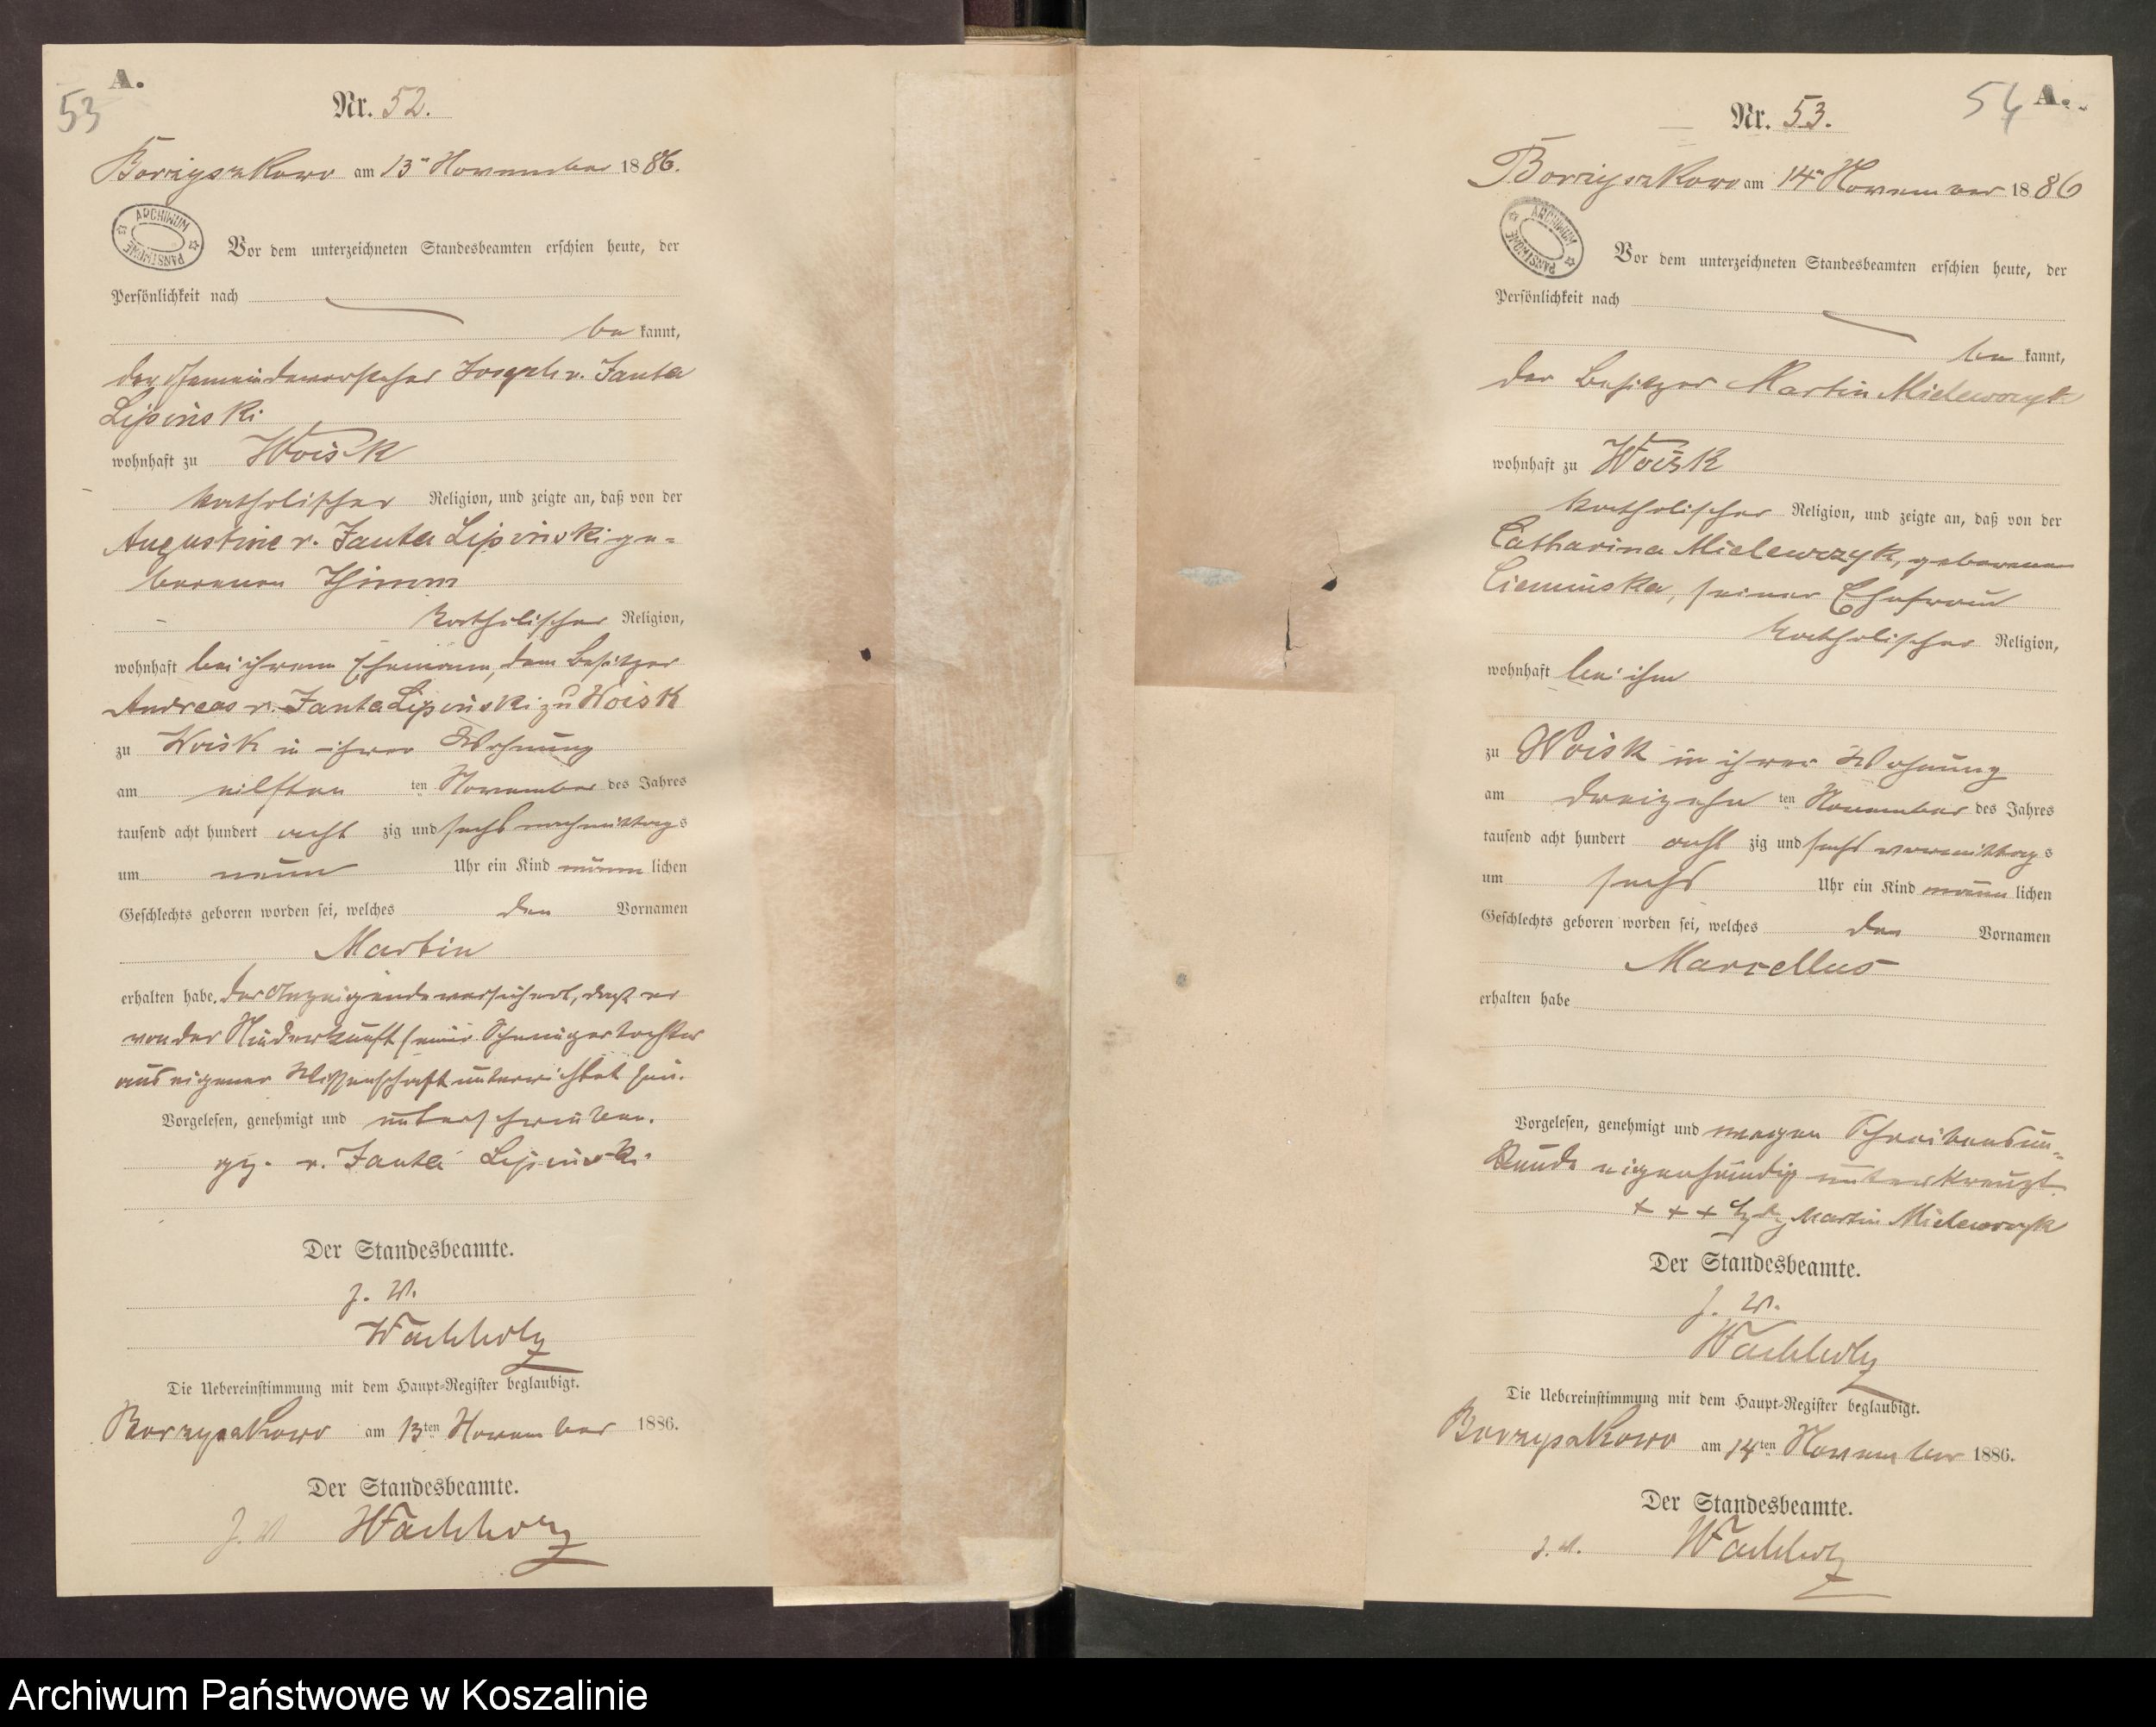 A.
53
Nr. 52.
Borzyszkowo am 13ten November 1886.
ARCHIWUM PAŃSTWOWE
Vor dem unterzeichneten Standesbeamten erschien heute, der
Persönlichkeit nach
be kannt,
der Gemeindevorsteher Joseph v. Janta
Lipinski
wohnhaft zu Woisk
katholischer Religion, und zeigte an, daß von der
Augustine v. Janta Lipinski ge=
borenen Thimm
katholischer Religion,
wohnhaft bei ihrem Ehemann, dem Besitzer
Andreas v. Janta Lipinski zu Woisk
zu Woisk in ihrer Wohnung
am eilften ten November des Jahres
tausend acht hundert acht zig und sechs nachmittags
um neun Uhr ein Kind männ lichen
Geschlechts geboren worden sei, welches den Vornamen
Martin
erhalten habe. Der Anzeigende versichert, daß er
von der Niederkunft seiner Schwiegertochter
aus eigener Wissenschaft unterrichtet sei.
Vorgelesen, genehmigt und unterschrieben.
gez. v. Janta Lipinski.
Der Standesbeamte.
J. V.
Wachholz
Die Uebereinstimmung mit dem Haupt=Register beglaubigt.
Borzyszkowo am 13ten November 1886.
Der Standesbeamte.
J. V. Wachholz
54 A.
Nr. 53.
Borzyszkowo am 14ten November 1886
ARCHIWUM PAŃSTWOWE
Vor dem unterzeichneten Standesbeamten erschien heute, der
Persönlichkeit nach
be kannt,
der Besitzer Martin Mielewczyk
wohnhaft zu Woisk
katholischer Religion, und zeigte an, daß von der
Catharina Mielewczyk, geborenen
Cieminska, seiner Ehefrau
katholischer Religion,
wohnhaft bei ihm
zu Woisk in ihrer Wohnung
am dreizehn ten November des Jahres
tausend acht hundert acht zig und sechs vormittags
um sechs Uhr ein Kind männ lichen
Geschlechts geboren worden sei, welches den Vornamen
Marcellus
erhalten habe
Vorgelesen, genehmigt und wegen Schreibensun=
kunde eigenhändig unterkreuzt.
+ + + Martin Mielewczyk
Der Standesbeamte.
J. V.
Wachholz
Die Uebereinstimmung mit dem Haupt=Register beglaubigt.
Borzyszkowo am 14ten November 1886.
Der Standesbeamte.
J. V. Wachholz
Archiwum Państwowe w Koszalinie